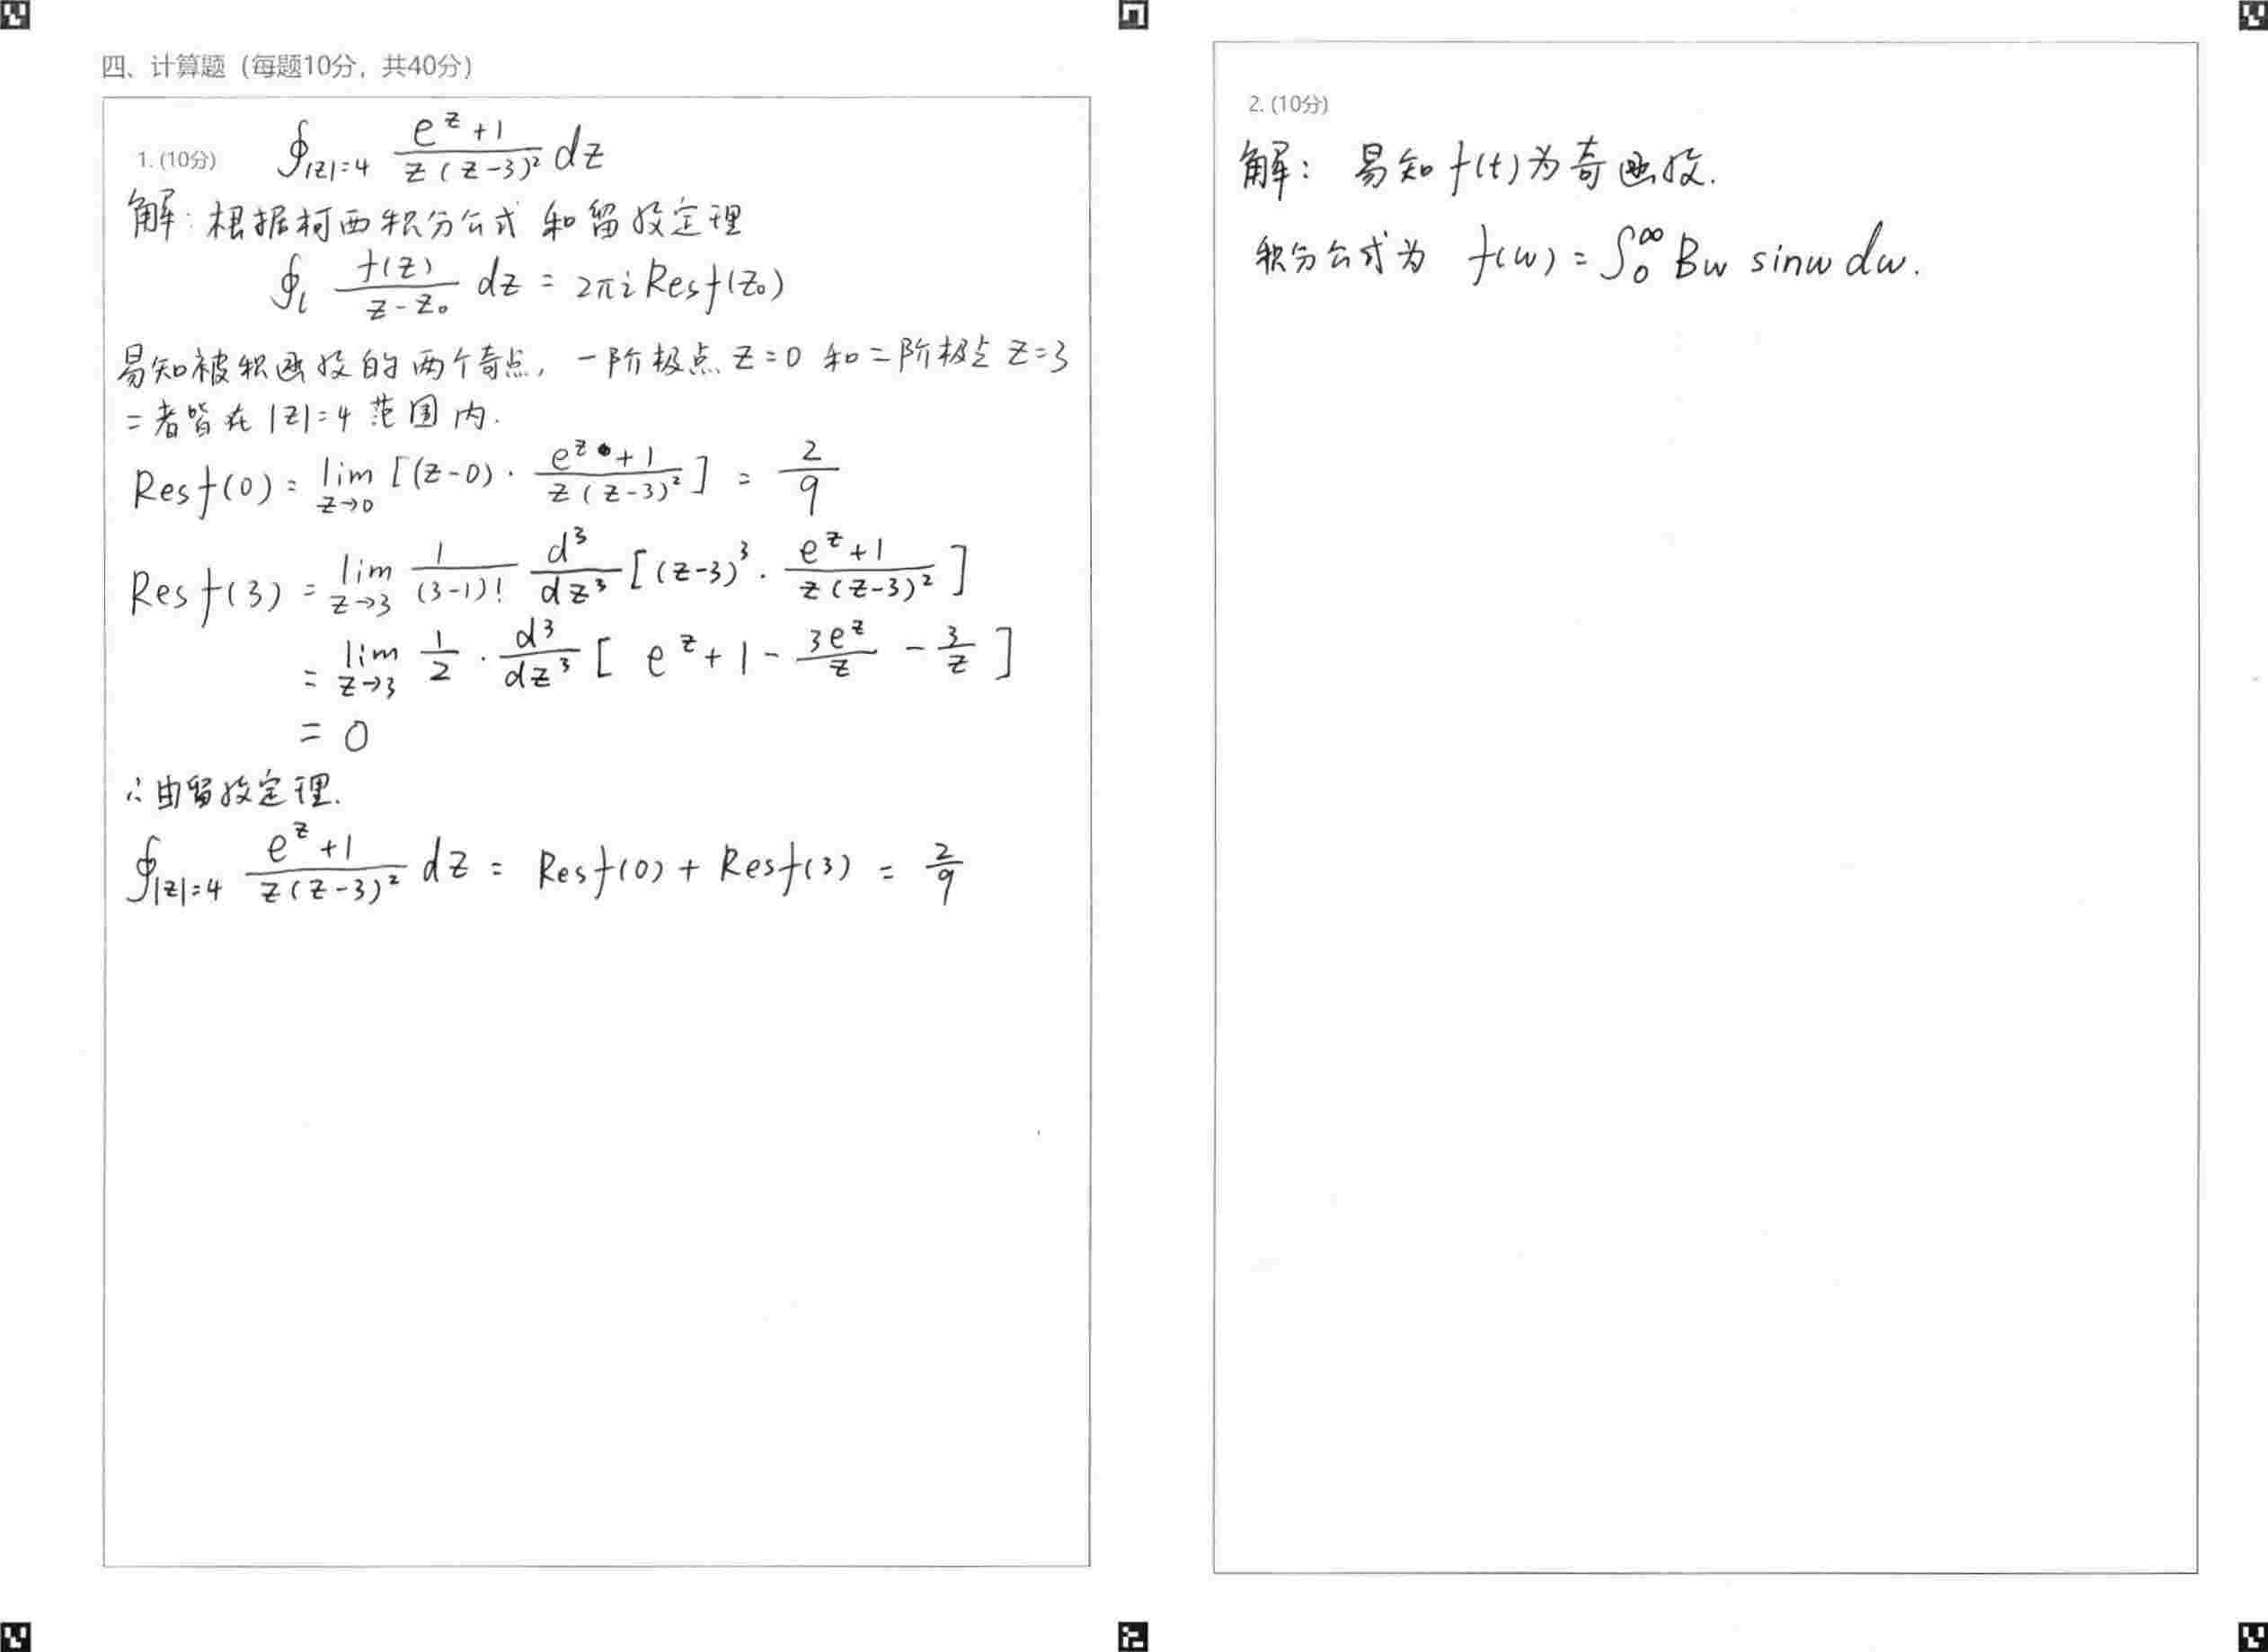 四、计算题（每题10分，共40分）
1. (10分) ∮_{|z|=4} \frac{e^z+1}{z(z-3)^2} dz
解：根据柯西积分公式和留数定理
∮_l \frac{f(z)}{z-z_0} dz = 2πi Resf(z_0)
易知被积函数的两个奇点，一阶极点 z=0 和二阶极点 z=3
二者皆在 |z|=4 范围内.
Resf(0) = \lim_{z→0} [(z-0)·\frac{e^z+1}{z(z-3)^2}] = \frac{2}{9}
Resf(3) = \lim_{z→3} \frac{1}{(3-1)!} \frac{d^3}{dz^3} [(z-3)^3·\frac{e^z+1}{z(z-3)^2}]
= \lim_{z→3} \frac{1}{2}·\frac{d^3}{dz^3} [e^z+1-\frac{3e^z}{z}-\frac{3}{z}]
= 0
∴由留数定理.
∮_{|z|=4} \frac{e^z+1}{z(z-3)^2} dz = Resf(0) + Resf(3) = \frac{2}{9}
2. (10分)
解：易知 f(t)为奇函数.
积分公式为 f(w) = ∫_0^∞ Bw sinw dw.